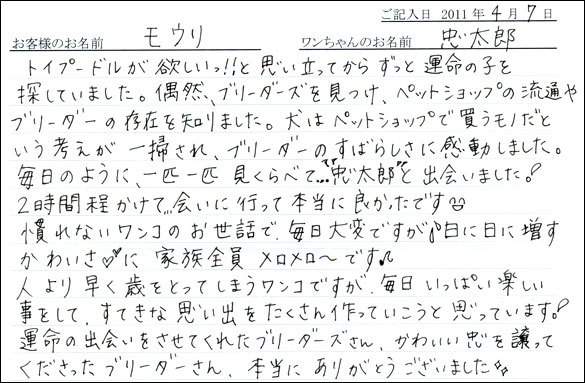 ご記入日 2011 年 4 月 7 日
お客様のお名前 モウリ ワンちゃんのお名前 忠太郎
トイプードルが欲しいっ!!と思い立ってからずっと運命の子を
探していました。偶然、ブリーダーズを見つけ、ペットショップの流通や
ブリーダーの存在を知りました。犬はペットショップで買うモノだと
いう考えが一掃され、ブリーダーのすばらしさに感動しました。
毎日のように、一匹一匹見くらべて…"忠太郎"と出会いました!
2時間程かけて…会いに行って本当に良かったです
慣れないワンコのお世話で、毎日大変ですが♪日に日に増す
かわいさ♡に家族全員メロメロ〜です♪
人より早く歳をとってしまうワンコですが、毎日いっぱい楽しい
事をして、すてきな思い出をたくさん作っていこうと思っています!
運命の出会いをさせてくれたブリーダーズさん、かわいい忠を譲って
くださったブリーダーさん、本当にありがとうございました